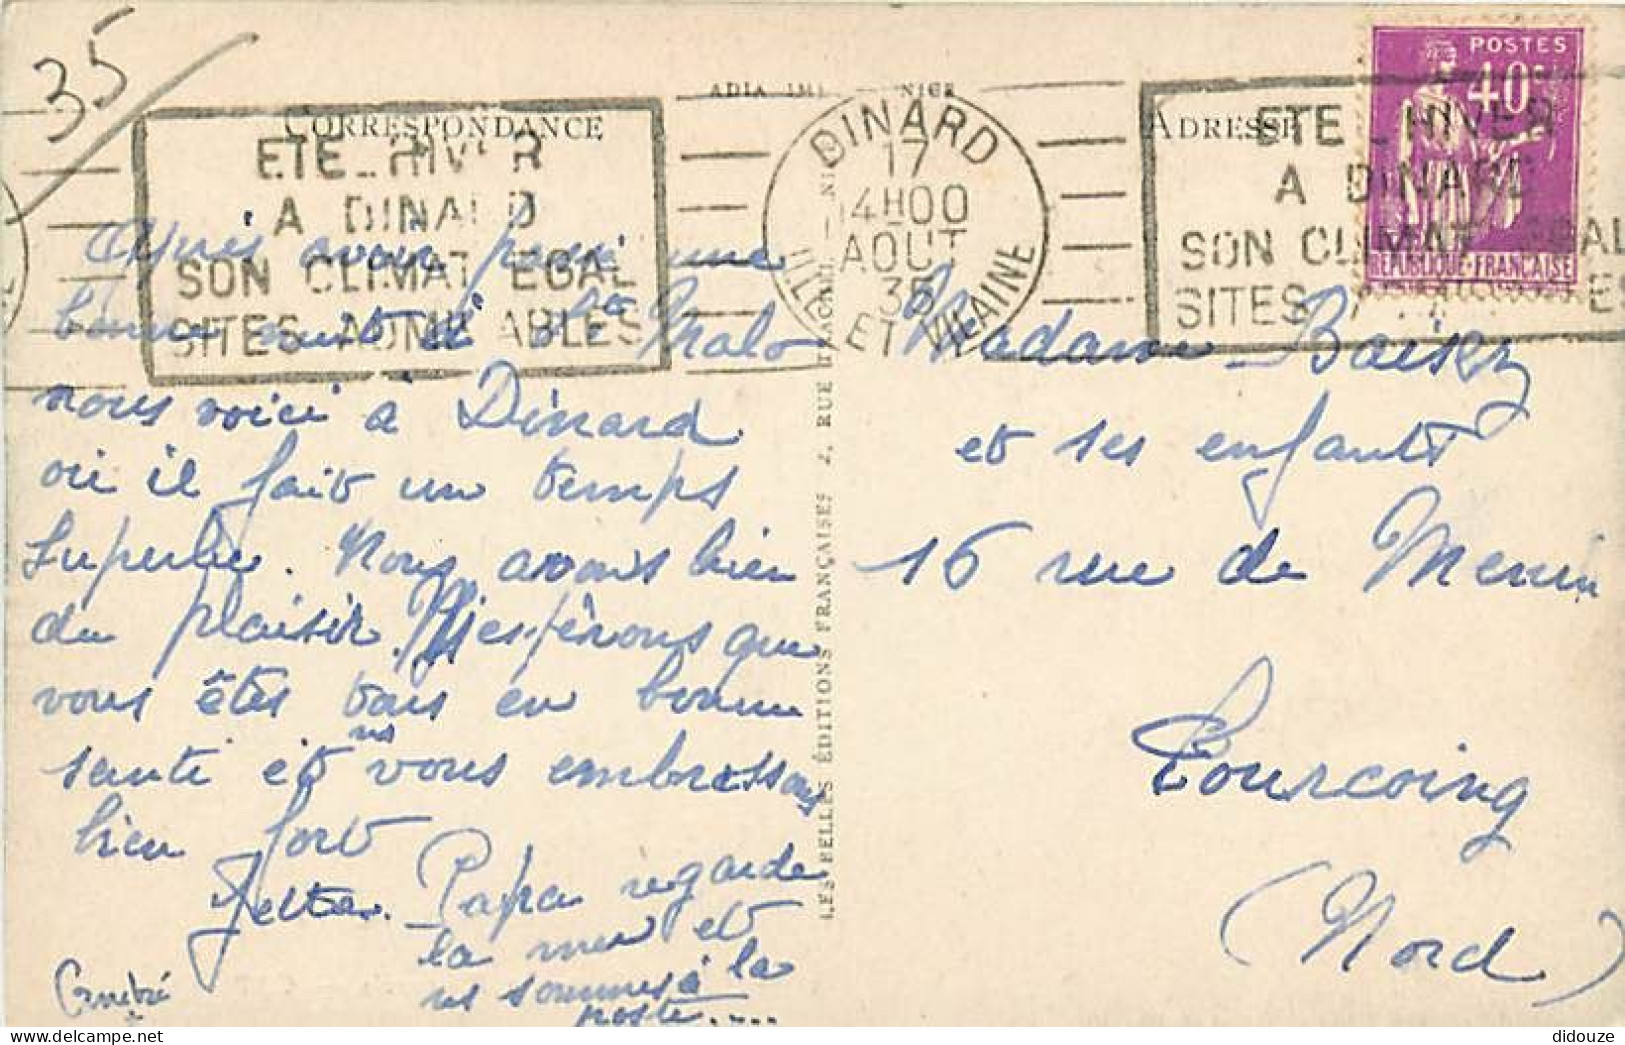 35
ADIA IMP. NICE
CORRESPONDANCE
ETE_HIVER
A DINARD
SON CLIMAT EGAL
SITES ADMIRABLES
DINARD
17
14H00
AOUT
35
ILLE ET VILAINE
ADRESSE
ETE_HIVER
A DINARD
SON CLIMAT EGAL
SITES
POSTES
40c
REPUBLIQUE-FRANÇAISE
Après avoir passé une
bonne nuit à St Malo
nous voici à Dinard
où il fait un temps
superbe. Nous avons bien
du plaisir. Ns espérons que
vous êtes tous en bonne
santé et ns vous embrassons
bien fort
Papa regarde
la mer et
ns sommes à la
poste.....
LES BELLES ÉDITIONS FRANÇAISES 2, RUE NICE
Madame Baisez
et ses enfants
16 rue de Menin
Tourcoing
(Nord)
delcampe.net
didouze